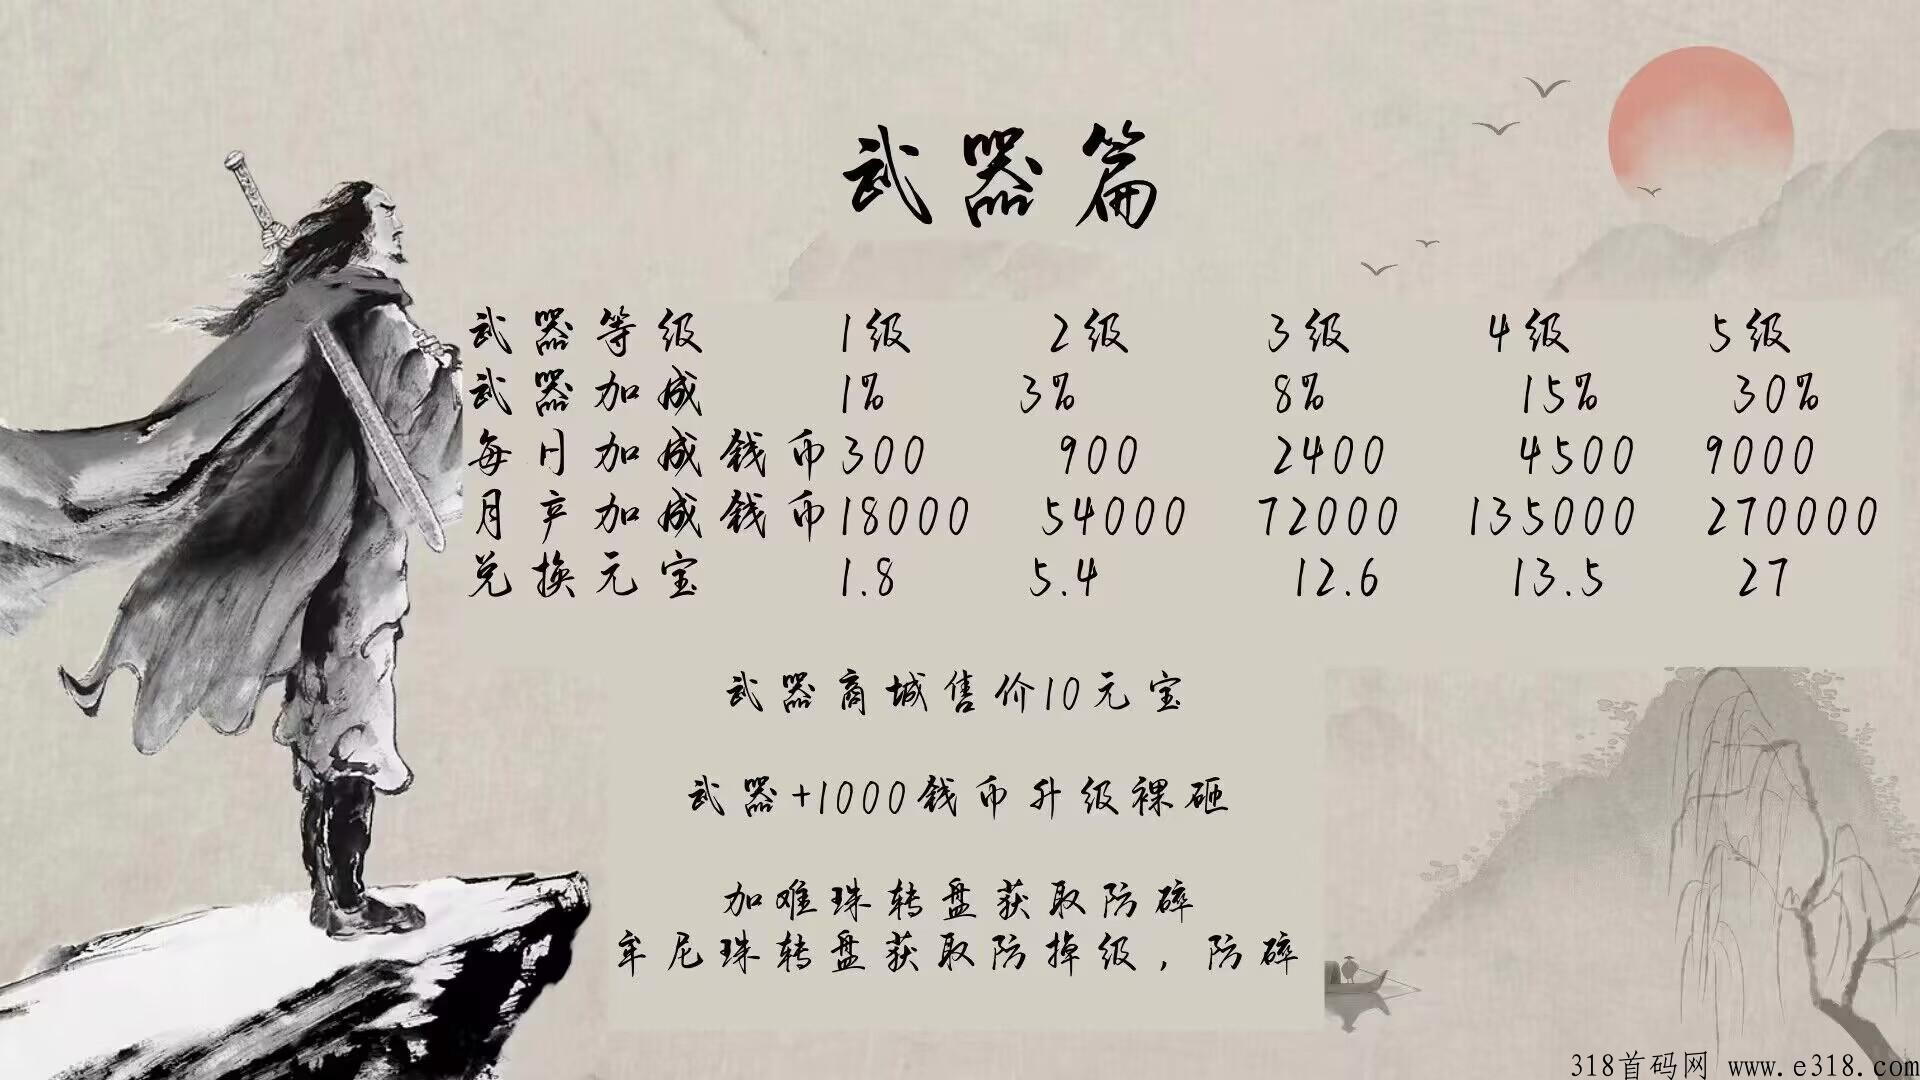 武器篇
武器等级 1级 2级 3级 4级 5级
武器加成 1% 3% 8% 15% 30%
每月加成钱币300 900 2400 4500 9000
月产加成钱币18000 54000 72000 135000 270000
兑换元宝 1.8 5.4 12.6 13.5 27
武器商城售价10元宝
武器+1000钱币升级裸砸
加难珠转盘获取防碎
牟尼珠转盘获取防掉级，防碎
318首码网 www.e318.com